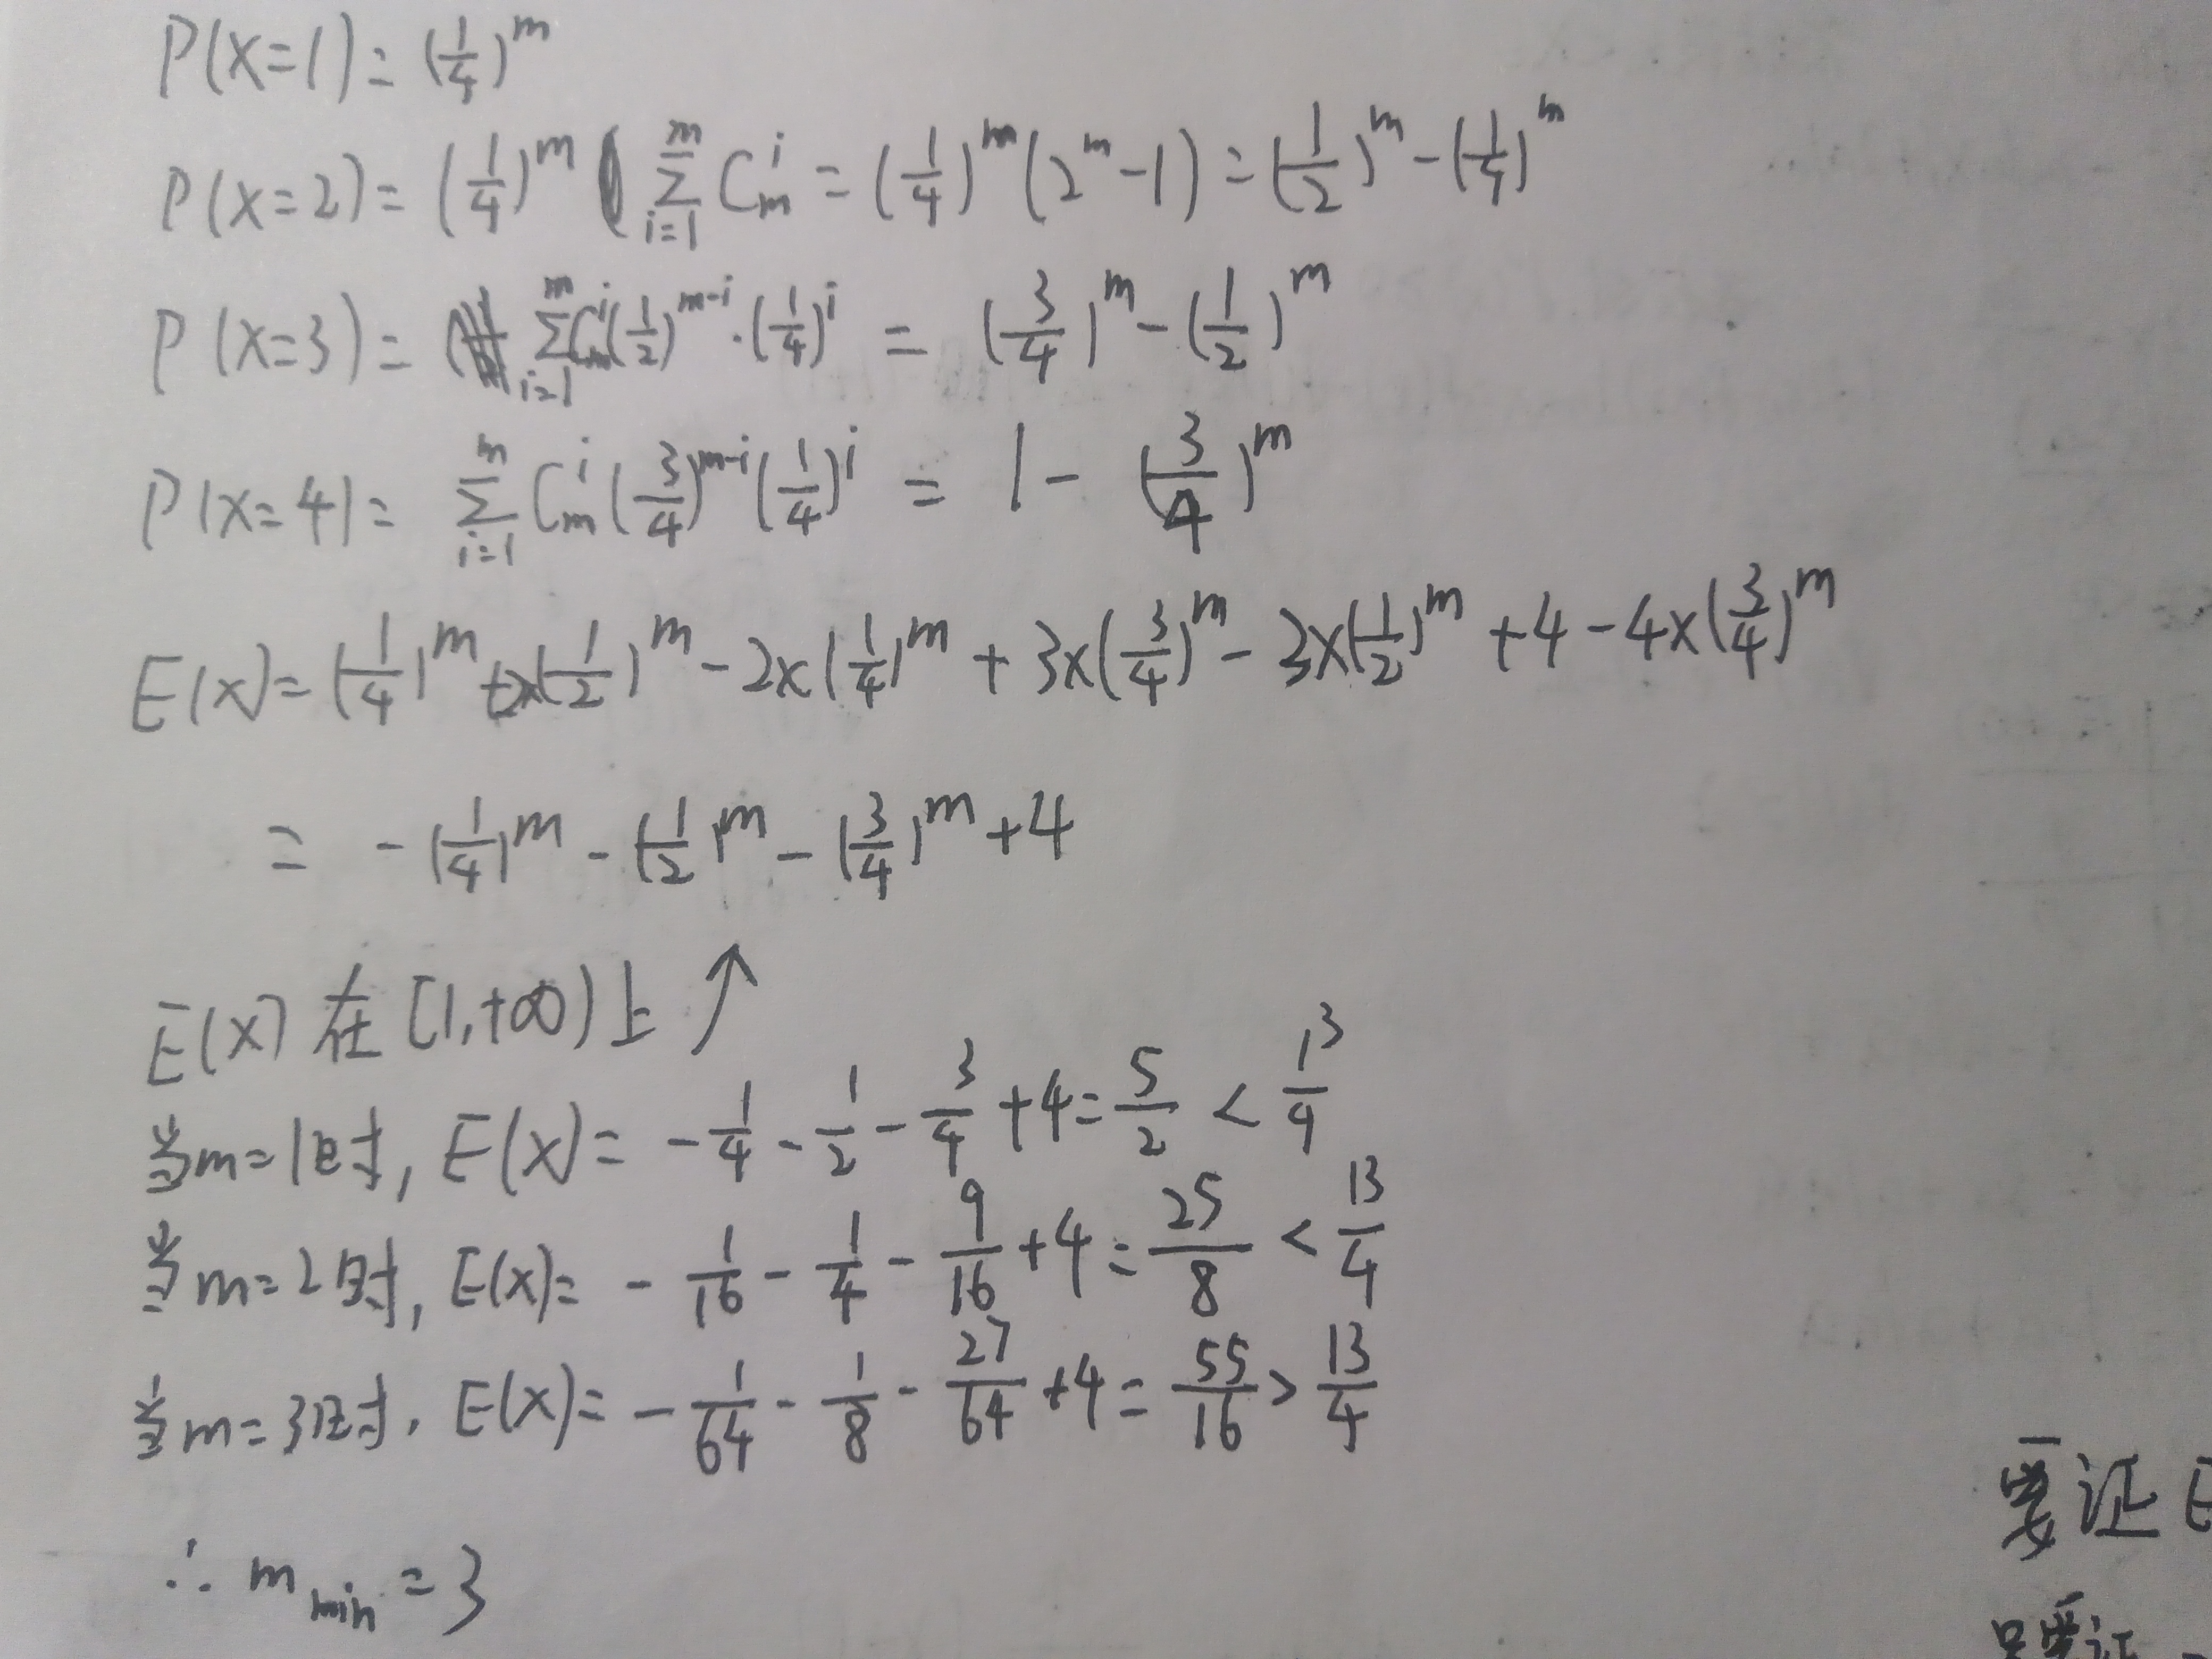 P(X=1)=(1/4)^m
P(X=2)=(1/4)^m ∑_{i=1}^{m} C_m^i = (1/4)^m (2^m-1) = (1/2)^m - (1/4)^m
P(X=3)= ∑_{i=1}^{m} C_m^i (1/2)^{m-i} · (1/4)^i = (3/4)^m - (1/2)^m
P(X=4)= ∑_{i=1}^{m} C_m^i (3/4)^{m-i} (1/4)^i = 1 - (3/4)^m
E(X)=(1/4)^m +2×(1/2)^m - 2×(1/4)^m + 3×(3/4)^m - 3×(1/2)^m + 4 - 4×(3/4)^m
= -(1/4)^m - (1/2)^m - (3/4)^m + 4
E(X) 在 [1,+∞) 上 ↑
当m=1时, E(X)= -1/4 - 1/2 - 3/4 + 4 = 5/2 < 13/4
当m=2时, E(X)= -1/16 - 1/4 - 9/16 + 4 = 25/8 < 13/4
当m=3时, E(X)= -1/64 - 1/8 - 27/64 + 4 = 55/16 > 13/4
∴ m_min = 3
要证 E
只要证